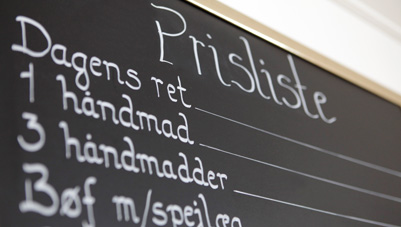 Prisliste
Dagens ret
1 håndmad
3 håndmadder
Bøf m/spejlæg